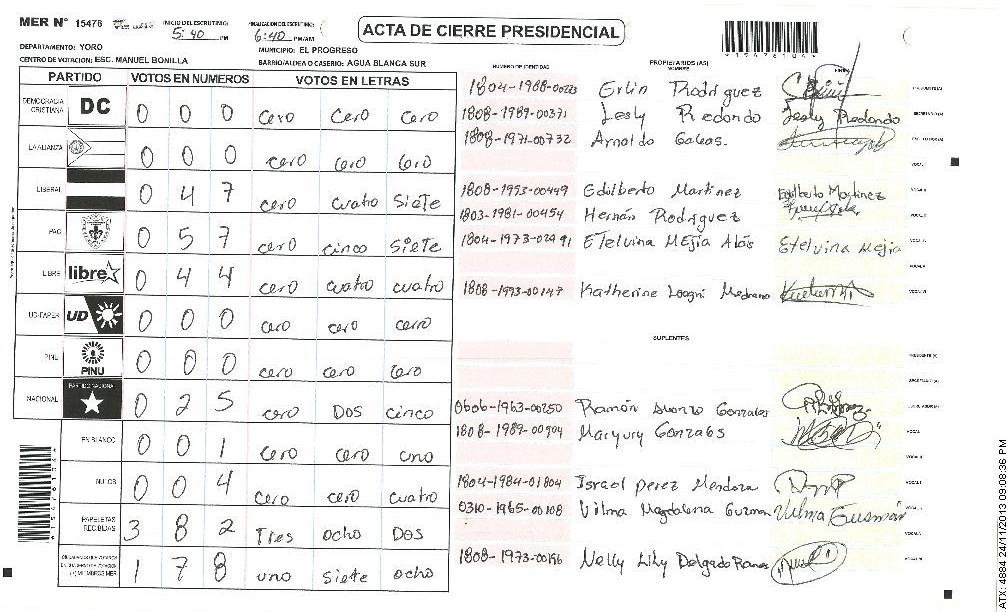 MER N° 15476 INICIO DEL ESCRUTINIO: 5:40 PM FINALIZACION DEL ESCRUTINIO: 6:40 PM/AM
ACTA DE CIERRE PRESIDENCIAL
DEPARTAMENTO: YORO MUNICIPIO: EL PROGRESO
CENTRO DE VOTACION: ESC. MANUEL BONILLA BARRIO/ALDEA O CASERIO: AGUA BLANCA SUR
PARTIDO VOTOS EN NUMEROS VOTOS EN LETRAS
DEMOCRACIA CRISTIANA DC 0 0 0 cero cero cero
LA ALIANZA 0 0 0 cero cero cero
LIBERAL 0 4 7 cero cuatro siete
PAC 0 5 7 cero cinco siete
LIBRE libre 0 4 4 cero cuatro cuatro
UD-FAPER UD 0 0 0 cero cero cero
PINU PINU 0 0 0 cero cero cero
NACIONAL PARTIDO NACIONAL 0 2 5 cero Dos cinco
EN BLANCO 0 0 1 cero cero uno
NULOS 0 0 4 cero cero cuatro
PAPELETAS RECIBIDAS 3 8 2 Tres ocho Dos
1 7 8 uno siete ocho
NUMERO DE IDENTIDAD PROPIETARIOS (AS) NOMBRE FIRMA
Erlin Rodriguez PRESIDENTE(A)
1808-1989-00371 Lesly Redondo Lesly Redondo SECRETARIO(A)
1808-1971-00732 Arnaldo Galeas.
VOCAL I
1808-1953-00449 Edilberto Martinez Edilberto Martinez VOCAL II
1803-1981-00454 Hernán Rodriguez
Etelvina Mejia Etelvina Mejia
1808-1993-00147 Katherine Medrano
SUPLENTES
PRESIDENTE(A)
SECRETARIO(A)
0606-1963-00250 Ramón Gonzales
1808-1989-00904 Maryury Gonzales
1804-1984-01804 Israel perez Mendoza
0310-1965-00108 Vilma Magdalena Guzman Vilma Guzman
Nelly Lily Delgado
ATX: 4884 24/11/2013 09:08:36 PM